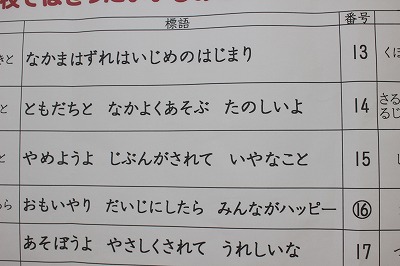 標語 番号
きと なかまはずれはいじめのはじまり 13 くぼ
と ともだちと なかよくあそぶ たのしいよ 14 さる るじ
と やめようよ じぶんがされて いやなこと 15
ら おもいやり だいじにしたら みんながハッピー ⑯
あそぼうよ やさしくされて うれしいな 17